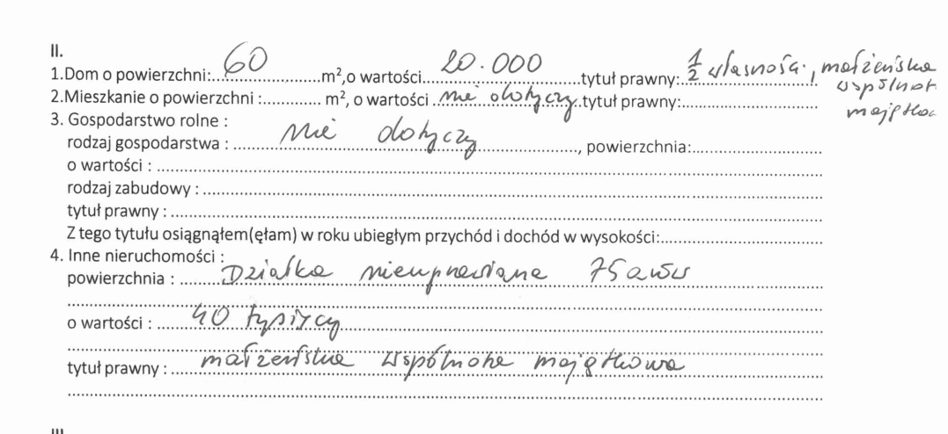 II.
1.Dom o powierzchni:....60....m²,o wartości....20.000....tytuł prawny: 1/2 własności, małżeńska
wspólnot
majątko
2.Mieszkanie o powierzchni :............ m², o wartości .nie dotyczy.tytuł prawny:............
3. Gospodarstwo rolne :
rodzaj gospodarstwa : ....nie dotyczy...., powierzchnia:............
o wartości : ............
rodzaj zabudowy : ............
tytuł prawny : ............
Z tego tytułu osiągnąłem(ęłam) w roku ubiegłym przychód i dochód w wysokości:............
4. Inne nieruchomości :
powierzchnia : Działka nieuprawiana 75 arów
o wartości : 40 tysięcy
tytuł prawny : małżeńska wspólnota majątkowa